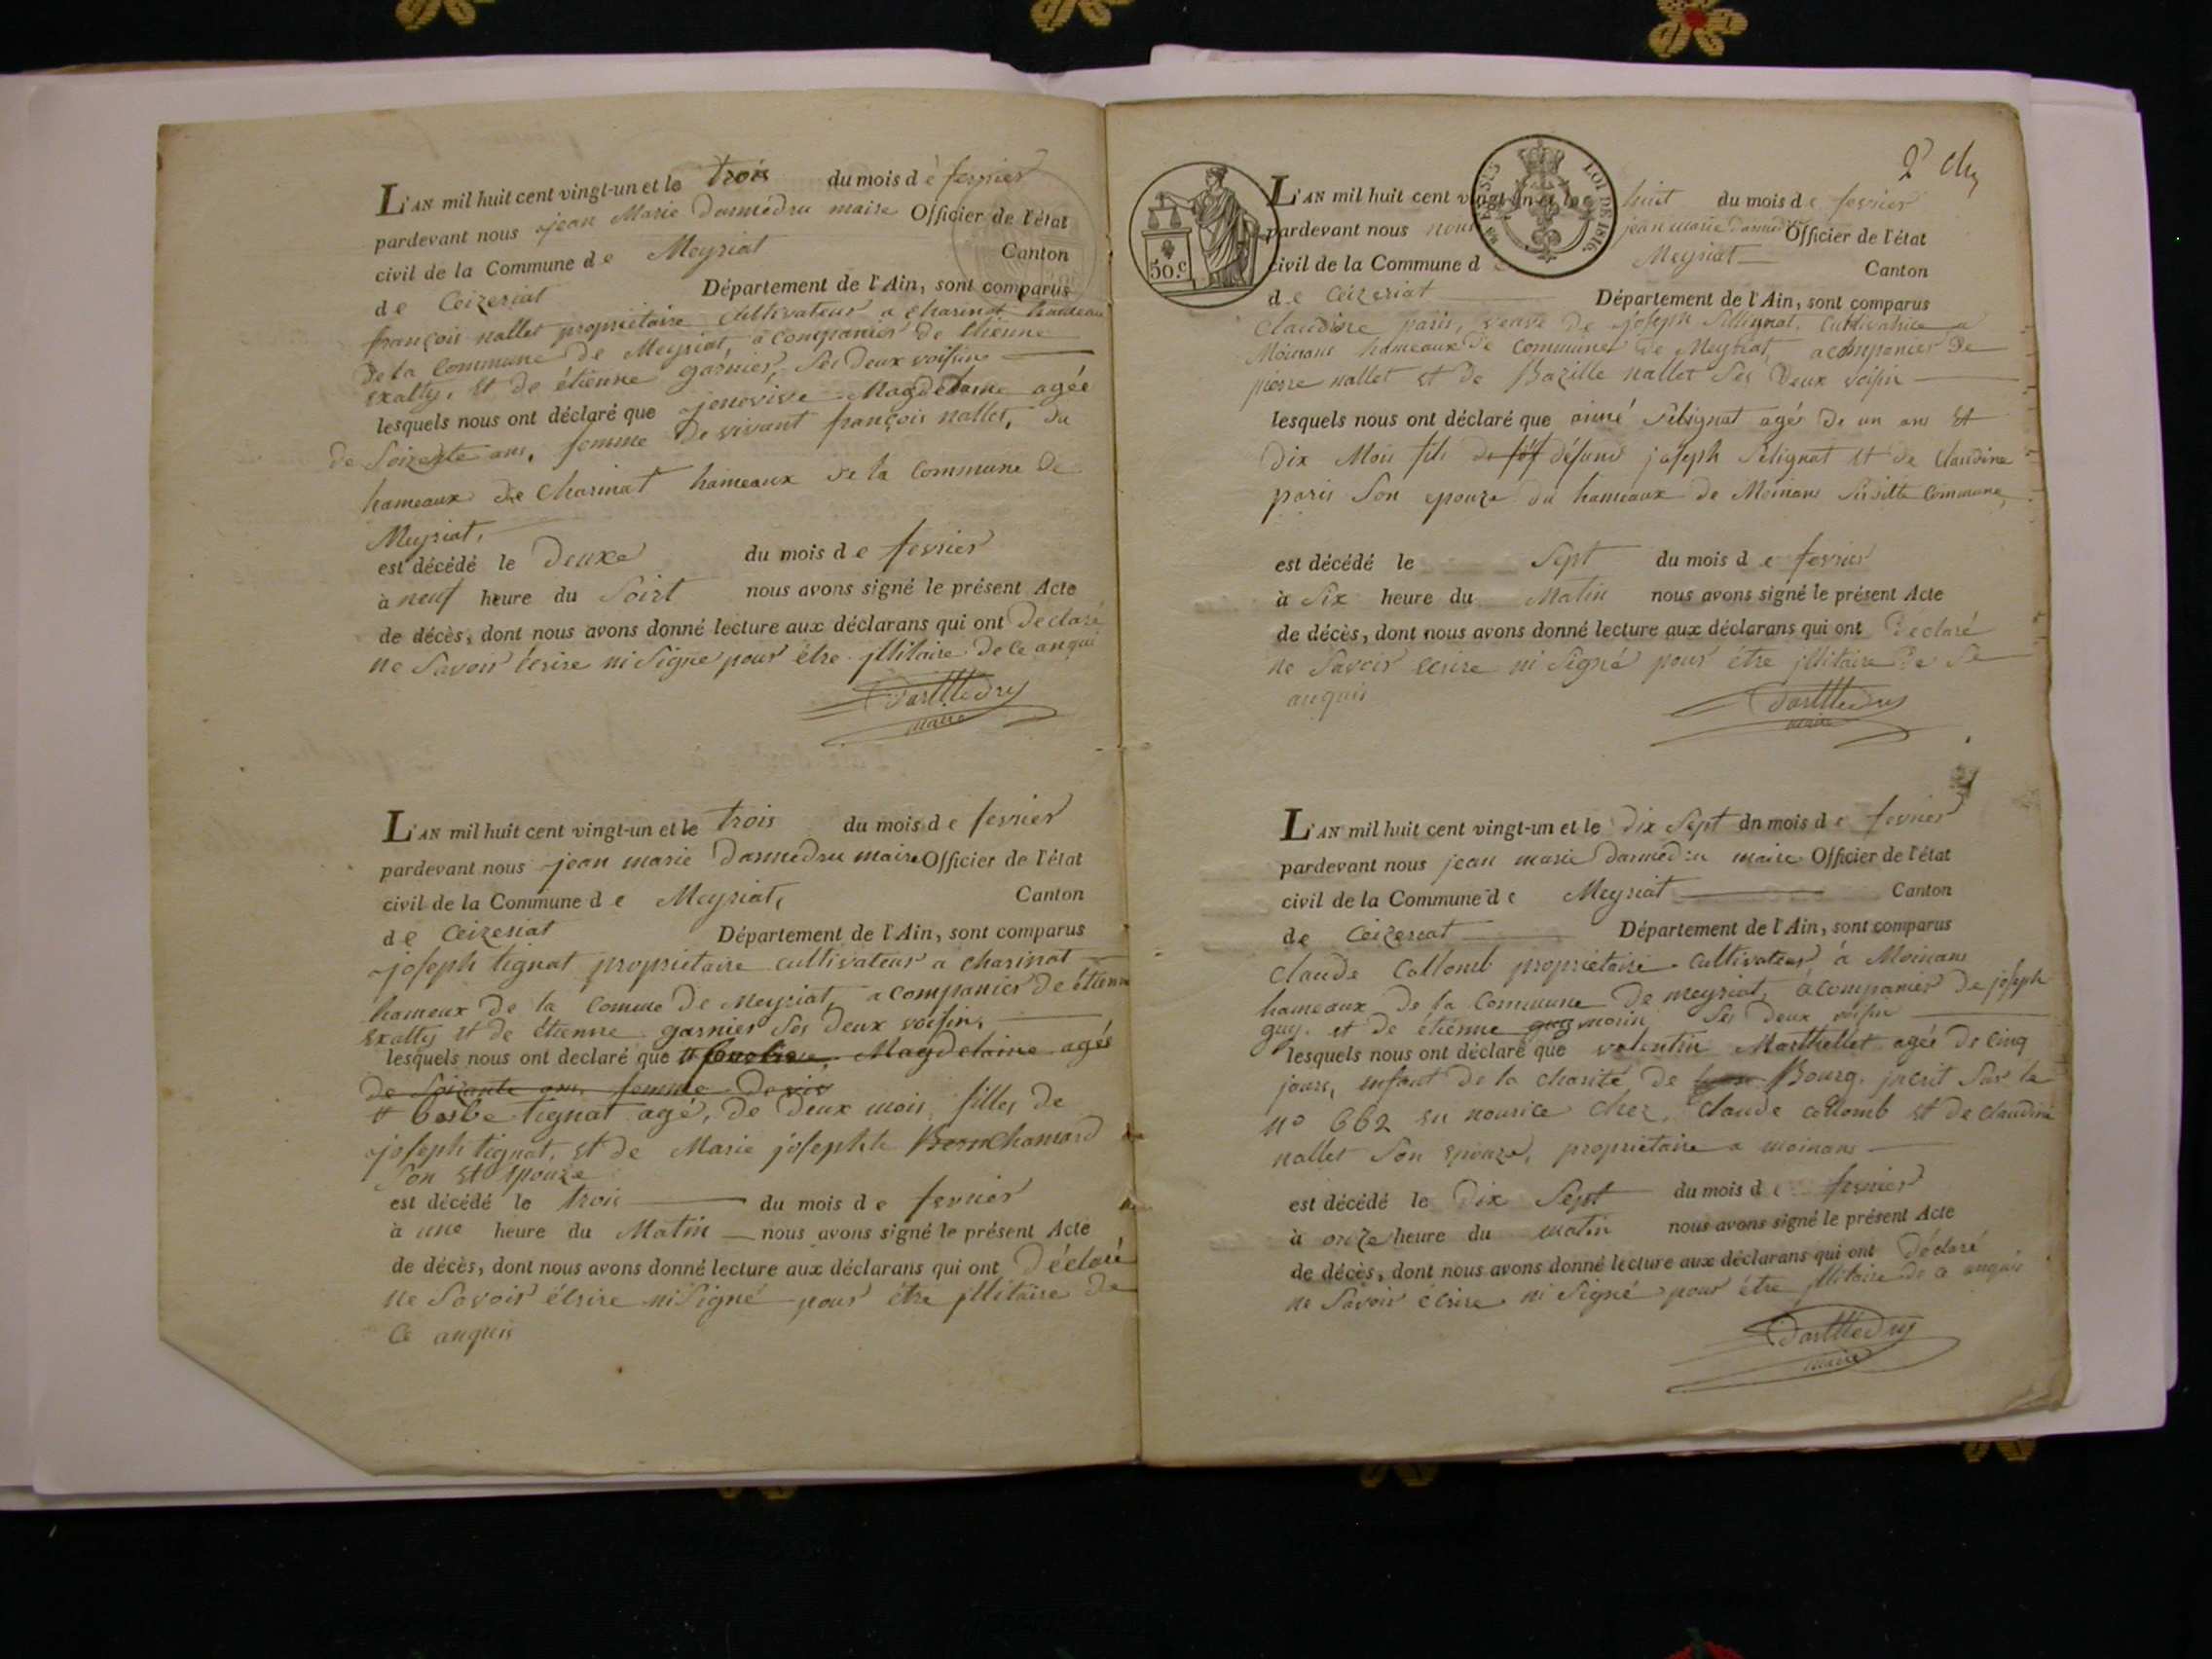 L'AN mil huit cent vingt-un et le trois du mois de fevrier
pardevant nous jean Marie Darmedru maire Officier de l'état
civil de la Commune de Meyriat Canton
de Ceizeriat Département de l'Ain, sont comparus
françois nallet propriétaire cultivateur a Charinat hameau
de la Commune de Meyriat, acompanier de Etienne
exaltty, et de étienne garnier, ses deux voisin
lesquels nous ont déclaré que jenevive Magdelaine agée
de Soizente ans, femme de vivant françois nallet, du
hameaux de Charinat hameaux de la Commune de
Meyriat,
est décédé le Deuxe du mois de fevrier
à neuf heure du Soirt nous avons signé le présent Acte
de décès, dont nous avons donné lecture aux déclarans qui ont Declaré
ne Savoir écrire ni Signé pour étre jllitaire de ce anquis
DarMedru
maire
L'AN mil huit cent vingt-un et le trois du mois de fevrier
pardevant nous jean marie Darmedru maire Officier de l'état
civil de la Commune de Meyriat, Canton
de Ceizeriat Département de l'Ain, sont comparus
joseph tignat propriétaire cultivateur a charinat
hameux de la Commue de Meyriat, acompanier de étienne
exaltty et de étienne garnier Ses Deux voisin,
lesquels nous ont declaré que Magdelaine agés
de Soizante ans, femme de viv
# barbe tignat agé, de Deux mois, filles de
joseph tignat, et de Marie josephte Chanard
Son et epouze
est décédé le trois du mois de fevrier
à une heure du Matin nous avons signé le présent Acte
de décès, dont nous avons donné lecture aux déclarans qui ont Déclaré
ne Savoir écrire ni Signé pour étre jllitaire de
Ce anquis
2e
50.c
LOI DE 1816.
L'AN mil huit cent vingt-un et le huit du mois de fevrier
pardevant nous nous jean marie Darmedru Officier de l'état
civil de la Commune d Meyriat Canton
de Ceizeriat Département de l'Ain, sont comparus
Claudine paris, veuve de joseph Sillignat, Cultivatrice a
Moinans hameaux de Communes de Meyriat, acompanier de
pierre nallet et de Bazille nallet Ses Deux voisin
lesquels nous ont déclaré que aimé Sélignat agér de un ans et
dix Mois fils de défund joseph Sélignat et de Claudine
paris Son epouze du hameaux de Moinans Sudille Commune
est décédé le Sept du mois de fevrier
à Six heure du Matin nous avons signé le présent Acte
de décès, dont nous avons donné lecture aux déclarans qui ont Declaré
ne Savoir ecrire ni Signé pour étre jllitaire de Se
anquis
DarMedru
maire
L'AN mil huit cent vingt-un et le dix Sept dn mois de fevrier
pardevant nous jean marie Darmedru maire Officier de l'état
civil de la Commune de Meyriat Canton
de Ceizereat Département de l'Ain, sont comparus
Claude Collomb propriétaire cultivateur à Moinans
hameaux de la Commune de meyriat, acompanier de joseph
guy. et de étienne morin Ses Deux voisin
lesquels nous ont déclaré que valentin Marthellet agée de Cinq
jours, enfant de la charité de Bourg. jncrit Sur le
no 662 en nourice chez, Claude collomb et de claudine
nallet Son épouze, propriétaire a moinans
est décédé le Dix Sept du mois de fevrier
à onze heure du matin nous avons signé le présent Acte
de décès, dont nous avons donné lecture aux déclarans qui ont Déclaré
ne Savoir écrire ni Signé pour étre jllitaire de ce anquis
DarMedru
maire